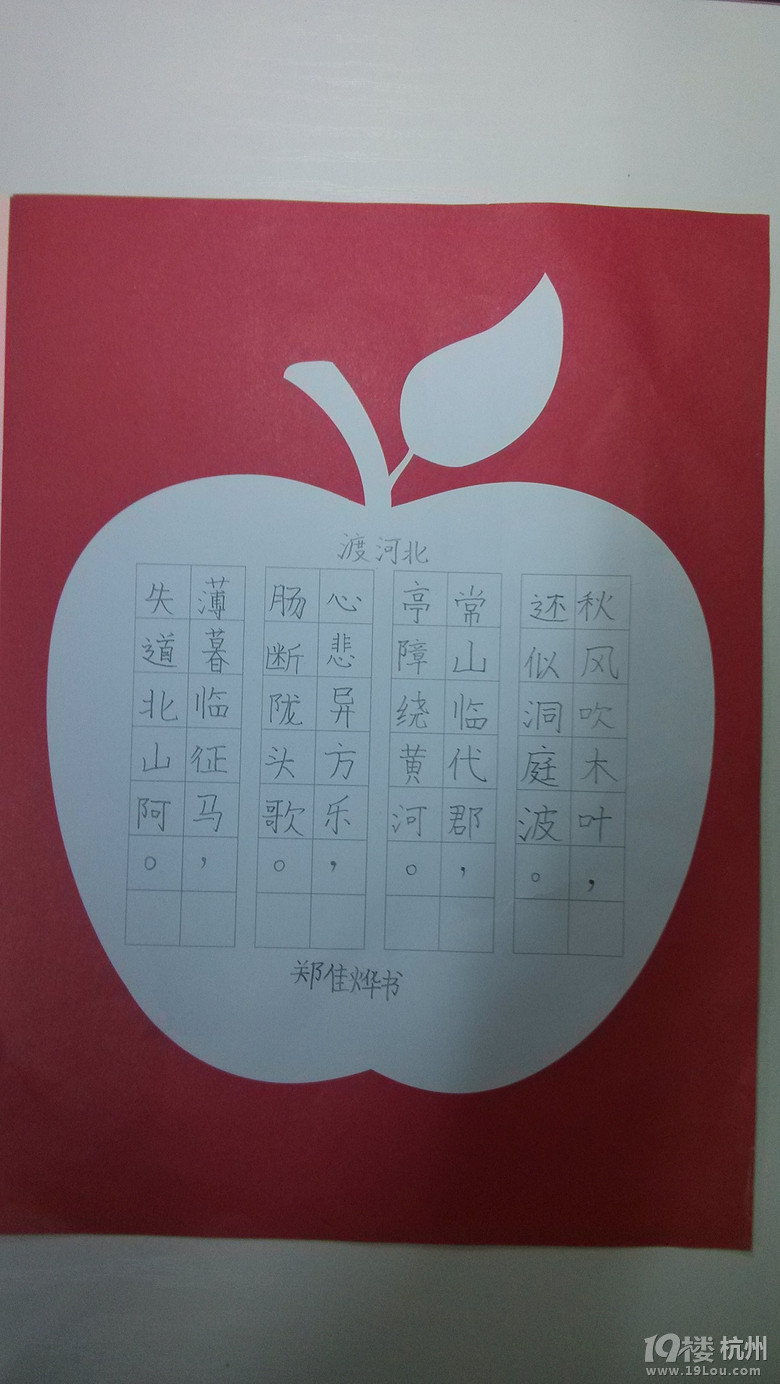 渡河北
秋风吹木叶，
还似洞庭波。
常山临代郡，
亭障绕黄河。
心悲异方乐，
肠断陇头歌。
薄暮临征马，
失道北山阿。
郑佳烨书
19楼 杭州
www.19Lou.com